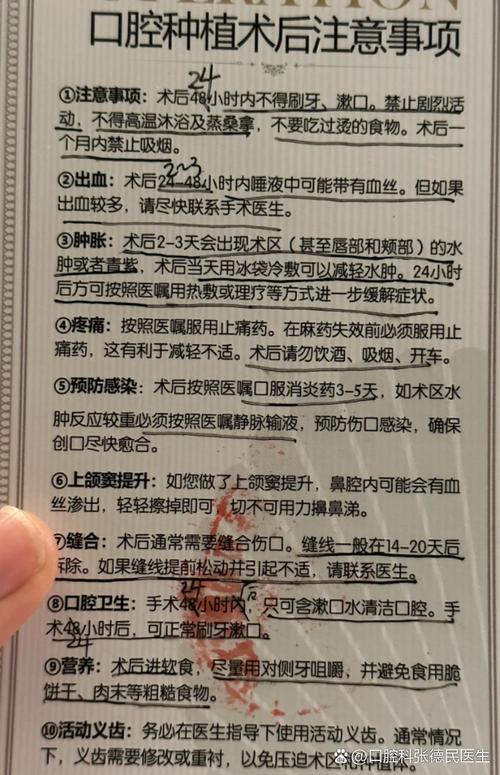 OPERATION
口腔种植术后注意事项
24
①注意事项：术后48小时内不得刷牙、漱口。禁止剧烈活
动，不得高温沐浴及蒸桑拿，不要吃过烫的食物。术后一
个月内禁止吸烟。
2-3
②出血：术后24-48小时内唾液中可能带有血丝。但如果
出血较多，请尽快联系手术医生。
③肿胀：术后2-3天会出现术区（甚至唇部和颊部）的水
肿或者青紫，术后当天用冰袋冷敷可以减轻水肿。24小时
后方可按照医嘱用热敷或理疗等方式进一步缓解症状。
④疼痛：按照医嘱服用止痛药。在麻药失效前必须服用止
痛药，这有利于减轻不适。术后请勿饮酒、吸烟、开车。
⑤预防感染：术后按照医嘱口服消炎药3-5天，如术区水
肿反应较重必须按照医嘱静脉输液，预防伤口感染，确保
创口尽快愈合。
⑥上颌窦提升：如您做了上颌窦提升，鼻腔内可能会有血
丝渗出，轻轻擦掉即可，切不可用力擤鼻涕。
⑦缝合：术后通常需要缝合伤口。缝线一般在14-20天后
拆除。如果缝线提前松动并引起不适，请联系医生。
24 后
⑧口腔卫生：手术48小时内，只可含漱口水清洁口腔。手
术48小时后，可正常刷牙漱口。
24
⑨营养：术后进软食，尽量用对侧牙咀嚼，并避免食用脆
饼干、肉末等粗糙食物。
⑩活动义齿：务必在医生指导下使用活动义齿。通常情况
下，义齿需要修改或重衬，以免压迫术区和种植体
知乎 @口腔科张德民医生